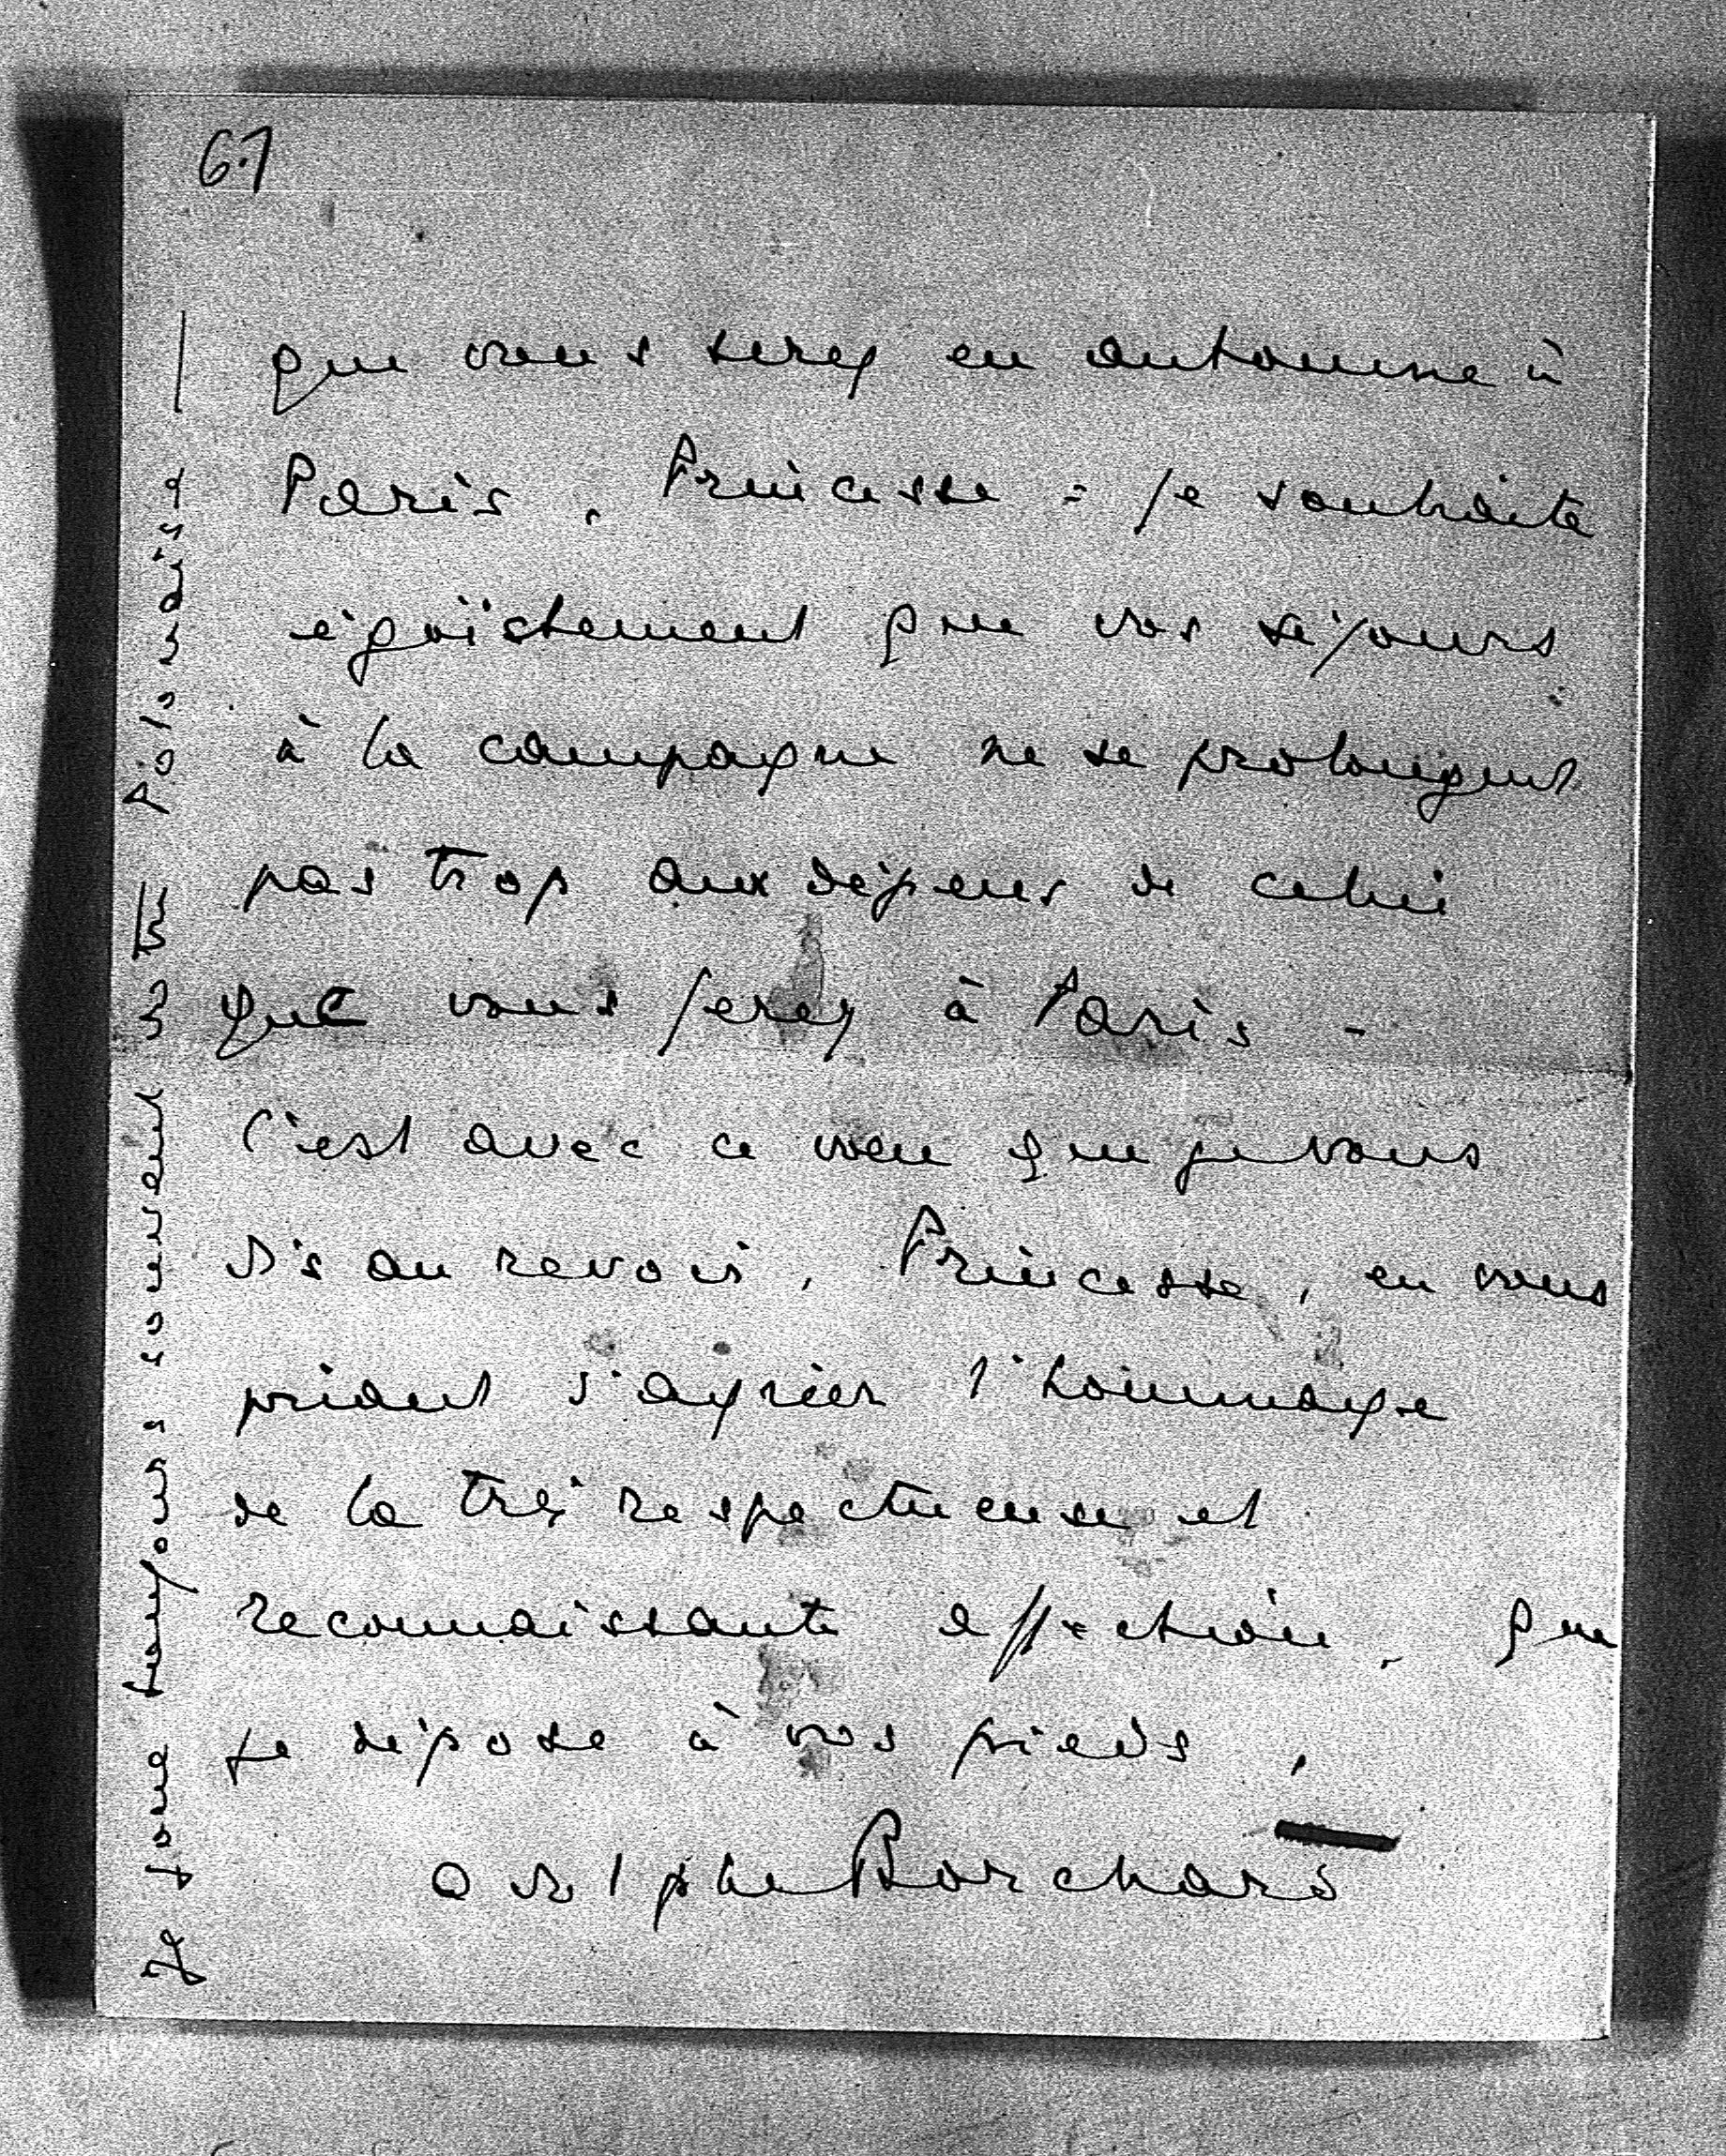 67
que vous serez en automne à
Paris, Princesse = je souhaite
égoïstement que vos séjours
à la campagne ne se prolongent
pas trop aux dépens de celui
que vous ferez à Paris -
C'est avec ce vœu que je vous
dis au revoir, Princesse, en vous
priant d'agréer l'hommage
de la très respectueuse et
reconnaissante affection, que
je dépose à vos pieds,
Adolphe Borchard
Je joue toujours souvent votre Polonaise —